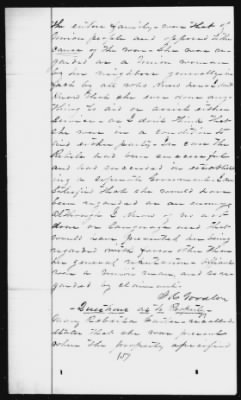 the entire family were that of
Union people and opposed to the
cause of the war. She was re
garded as a Union woman
by her neighbors generally in
fact by all who knew her. I dont
know that she ever done any
thing to aid or assist either
service as I dont think that
she was in a condition to
aid either party. In case the
Rebels had been successful
and had succeeded in establish
ing a separate Government I am
satisfied that she would have
been regarded as an enemy
although I know of no act
done or language used that
would have prevented her being
regarded as loyal other than
her general reputation which
was a Union man, and so re
garded by claimant.
Questions as to Property
Mary Roberta recalled
states that she was present
when the property specified
(5)